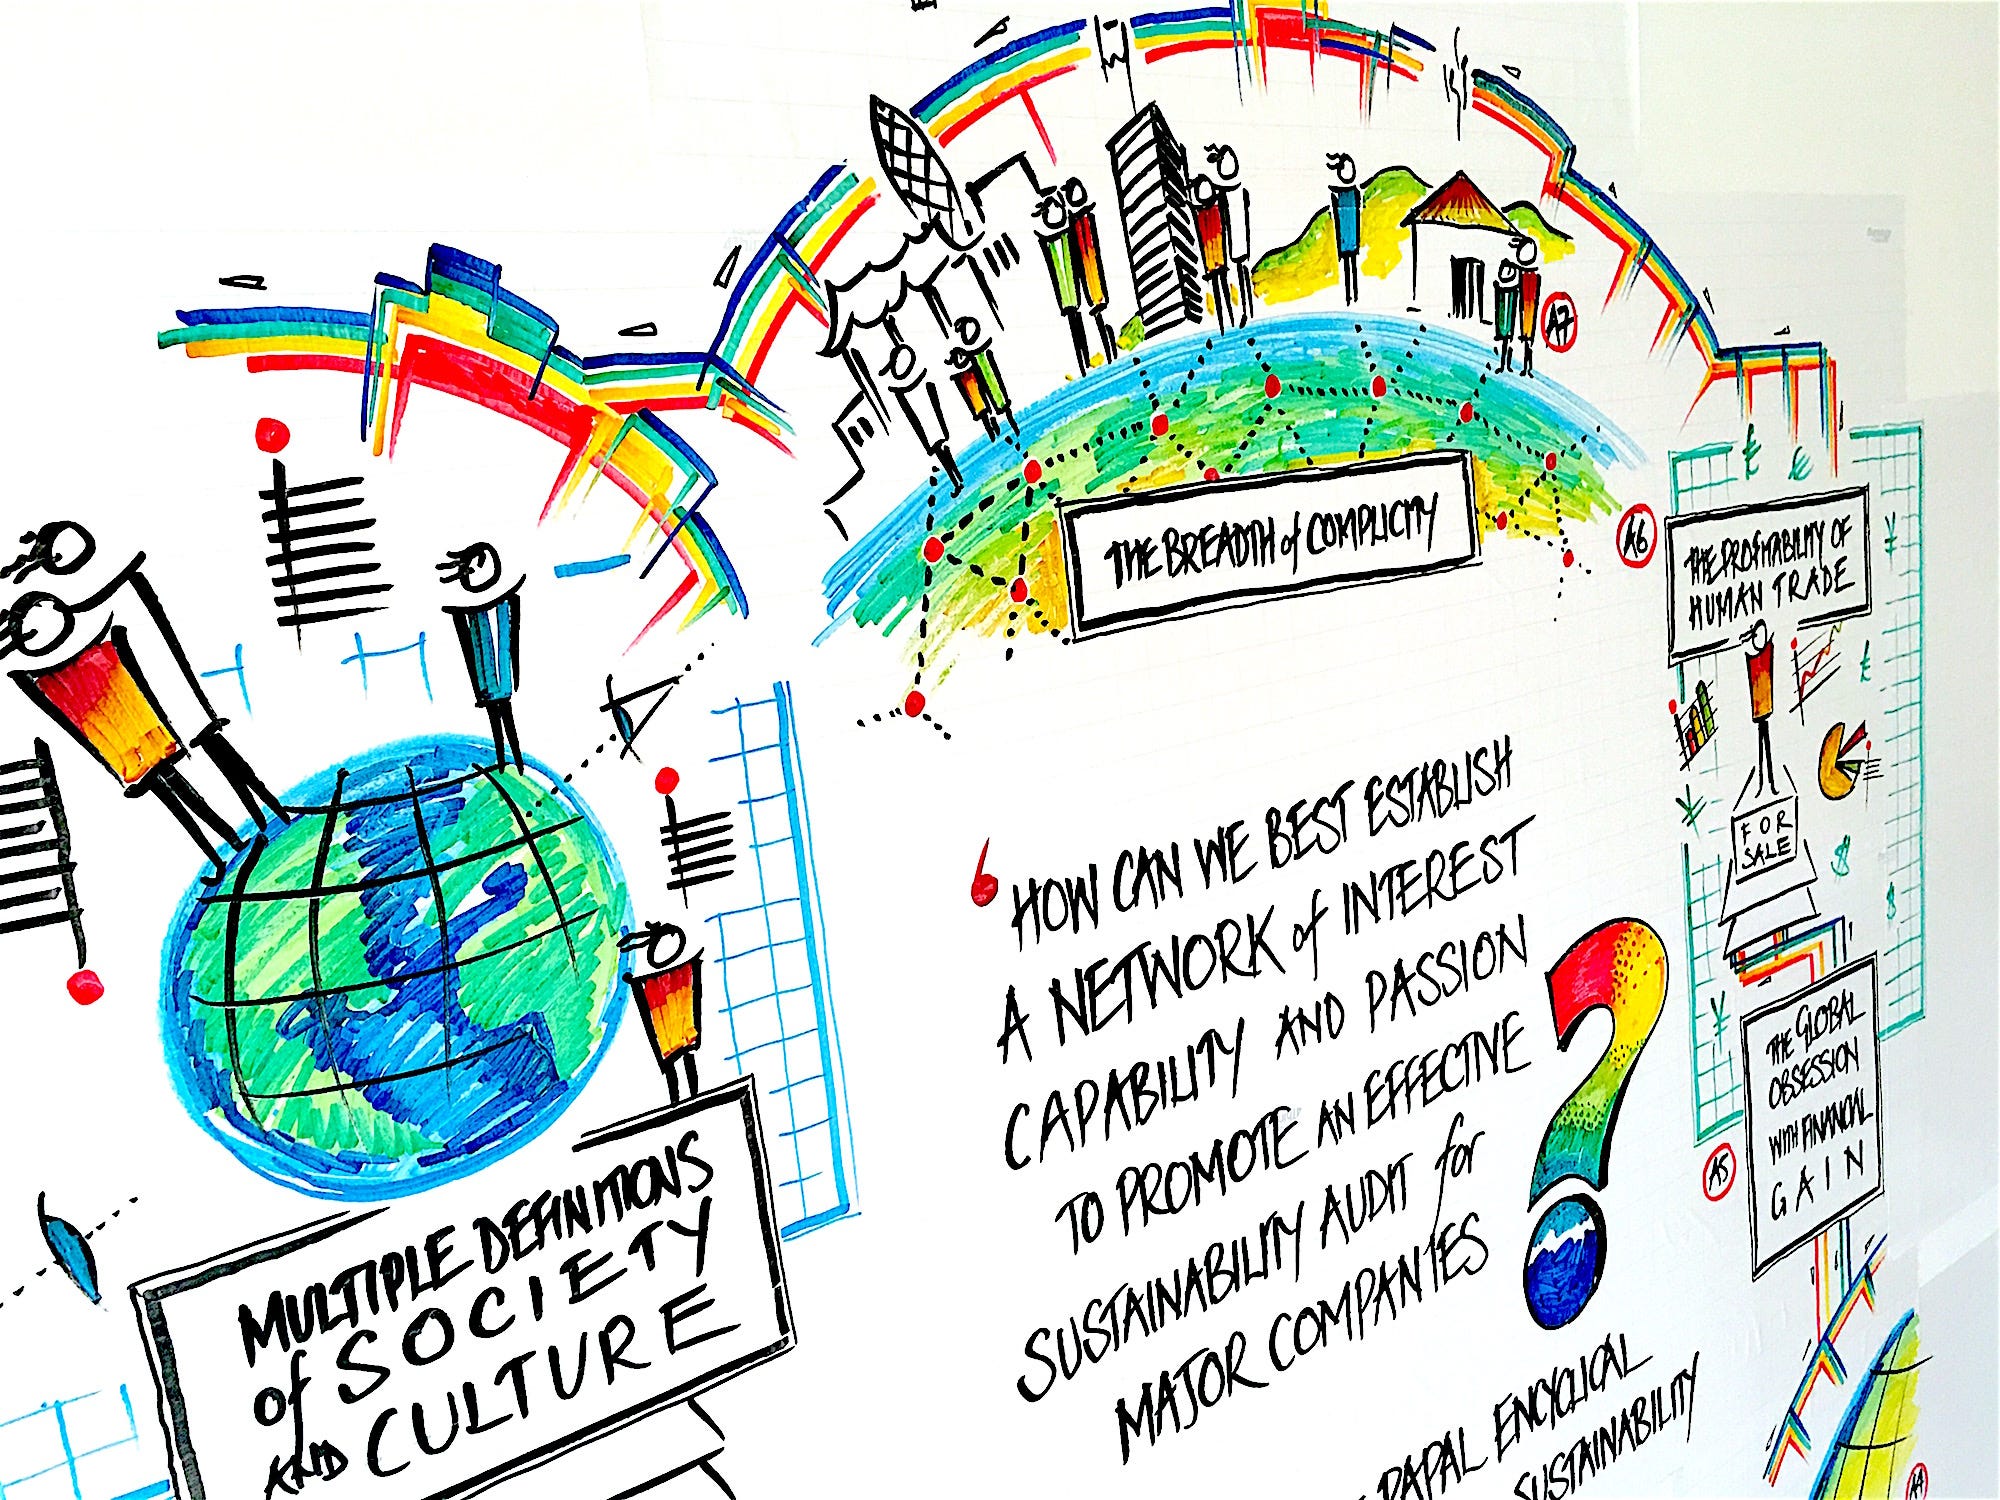 MULTIPLE DEFINITIONS
of SOCIETY
AND CULTURE
THE BREADTH of COMPLICITY
A7
A6
THE PROFITABILITY OF
HUMAN TRADE
FOR
SALE
THE GLOBAL
OBSESSION
WITH FINANCIAL
GAIN
A5
‘HOW CAN WE BEST ESTABLISH
A NETWORK of INTEREST
CAPABILITY AND PASSION
TO PROMOTE AN EFFECTIVE
SUSTAINABILITY AUDIT for
MAJOR COMPANIES?
PAPAL ENCYCLICAL
SUSTAINABILITY
A4